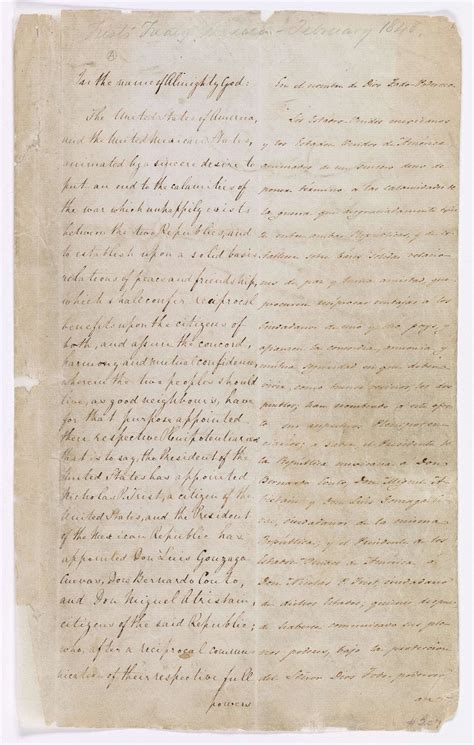 February 1848.
In the name of Almighty God:
The United States of America,
and the United Mexican States,
animated by a sincere desire to
put an end to the calamities of
the war which unhappily exists
between the two Republics, and
to establish upon a solid basis
relations of peace and friendship,
which shall confer reciprocal
benefits upon the citizens of
both, and assure the concord,
harmony and mutual confidence,
wherein the two peoples should
live, as good neighbours, have
for that purpose appointed
their respective Plenipotentiaries
that is to say, the President of the
United States has appointed
Nicholas P. Trist, a citizen of the
United States, and the President
of the Mexican Republic has
appointed Don Luis Gonzaga
Cuevas, Don Bernardo Couto,
and Don Miguel Atristain,
citizens of the said Republic;
who, after a reciprocal commu-
nication of their respective full
powers
En el nombre de Dios Todo-Poderoso
Los Estados-Unidos mexicanos
y los Estados Unidos de América
animados de un sincero deseo de
poner término a las calamidades de
la guerra que desgraciadamente
entre ambas Repúblicas, y de
sobre bases sólidas relacio
nes de paz y buena amistad, que
procuren recíprocas ventajas a los
ciudadanos de uno y otro país, y
afiancen la concordia, armonía y
mutua seguridad en que deben
vivir, como buenos vecinos los dos
pueblos; han nombrado a este efec
to sus respectivos Plenipoten
ciarios; a saber, el Presidente de
la República mexicana a Don
Bernardo Couto, Don Miguel A
tristain y Don Luis Gonzaga
ciudadanos de la misma
República, y el Presidente de los
Estados Unidos de América, a
Don Nicolas P. Trist, ciudadano
de dichos Estados, quienes despues
de haberse comunicado sus ple
nos poderes, bajo la protección
del Señor Dios Todo-poderoso